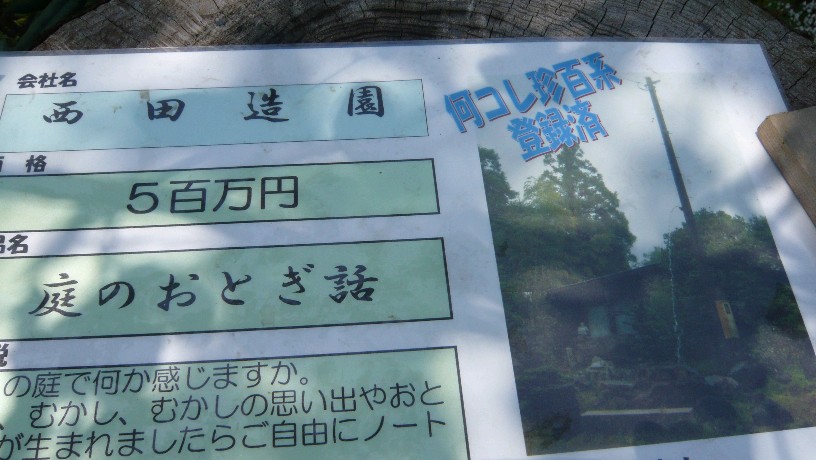 会社名
西田造園
格
5百万円
名
庭のおとぎ話
の庭で何か感じますか。
、むかし、むかしの思い出やおと
が生まれましたらご自由にノート
何コレ珍百系
登録済